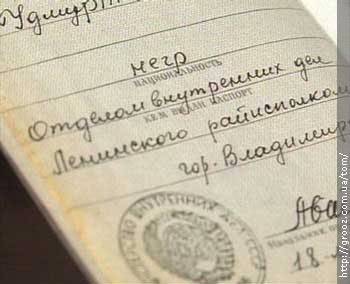 Удмурт
негр
НАЦИОНАЛЬНОСТЬ
Отделом внутренних дел
КЕМ ВЫДАН ПАСПОРТ
Ленинского райисполком
гор. Владимир
Ава
18
http://grooz.com.ua/tom/